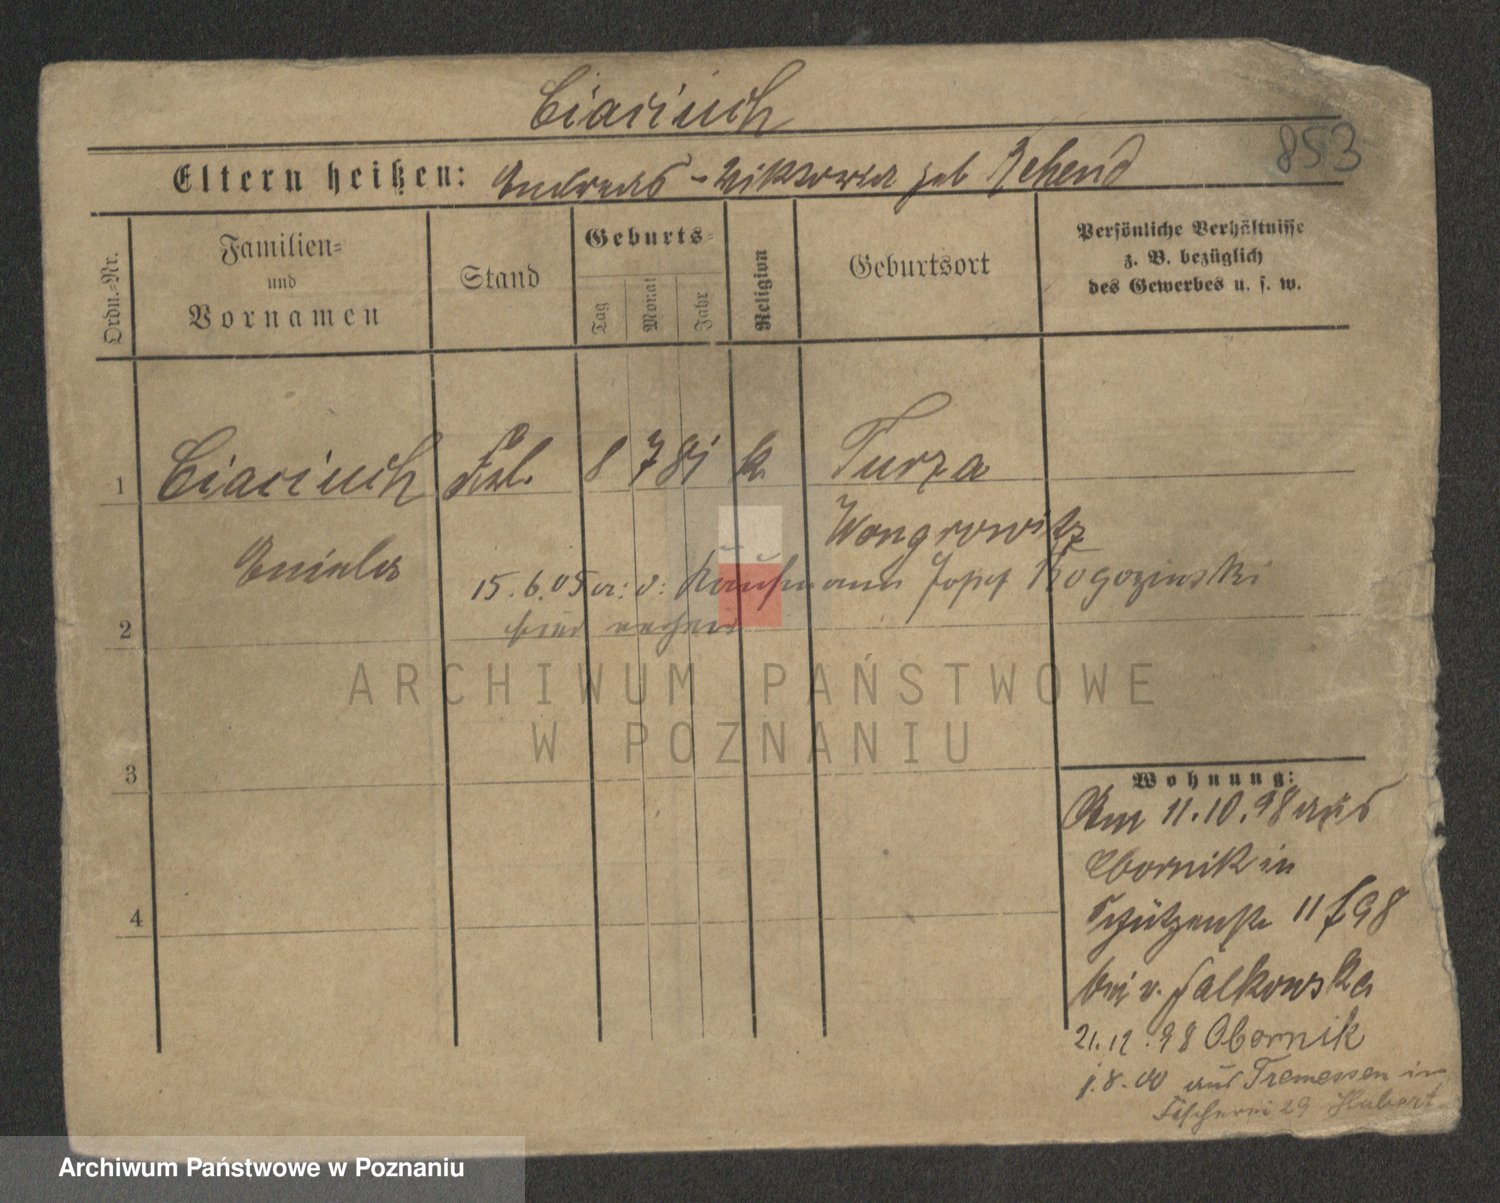 Ciaciuch
853
Eltern heißen: Andreas - Viktoria geb Rehend
Ordn.-Nr.
Familien- und Vornamen
Stand
Geburts-
Tag
Monat
Jahr
Religion
Geburtsort
Persönliche Verhältnisse
z. B. bezüglich
des Gewerbes u. s. w.
1 Ciaciuch Frl. 8 7 81 k. Turza
Wongrowitz
Aniela
15.6.05 Kaufmann Josef Rogozinski
2 hier
3
4
Wohnung:
Am 11.10.98 aus
Obornik in
Schützenstr 11 98
bei v. Falkowska
21.12.98 Obornik
1.8.00 aus Tremessen in
Fischerei 29
ARCHIWUM PAŃSTWOWE
W POZNANIU
Archiwum Państwowe w Poznaniu